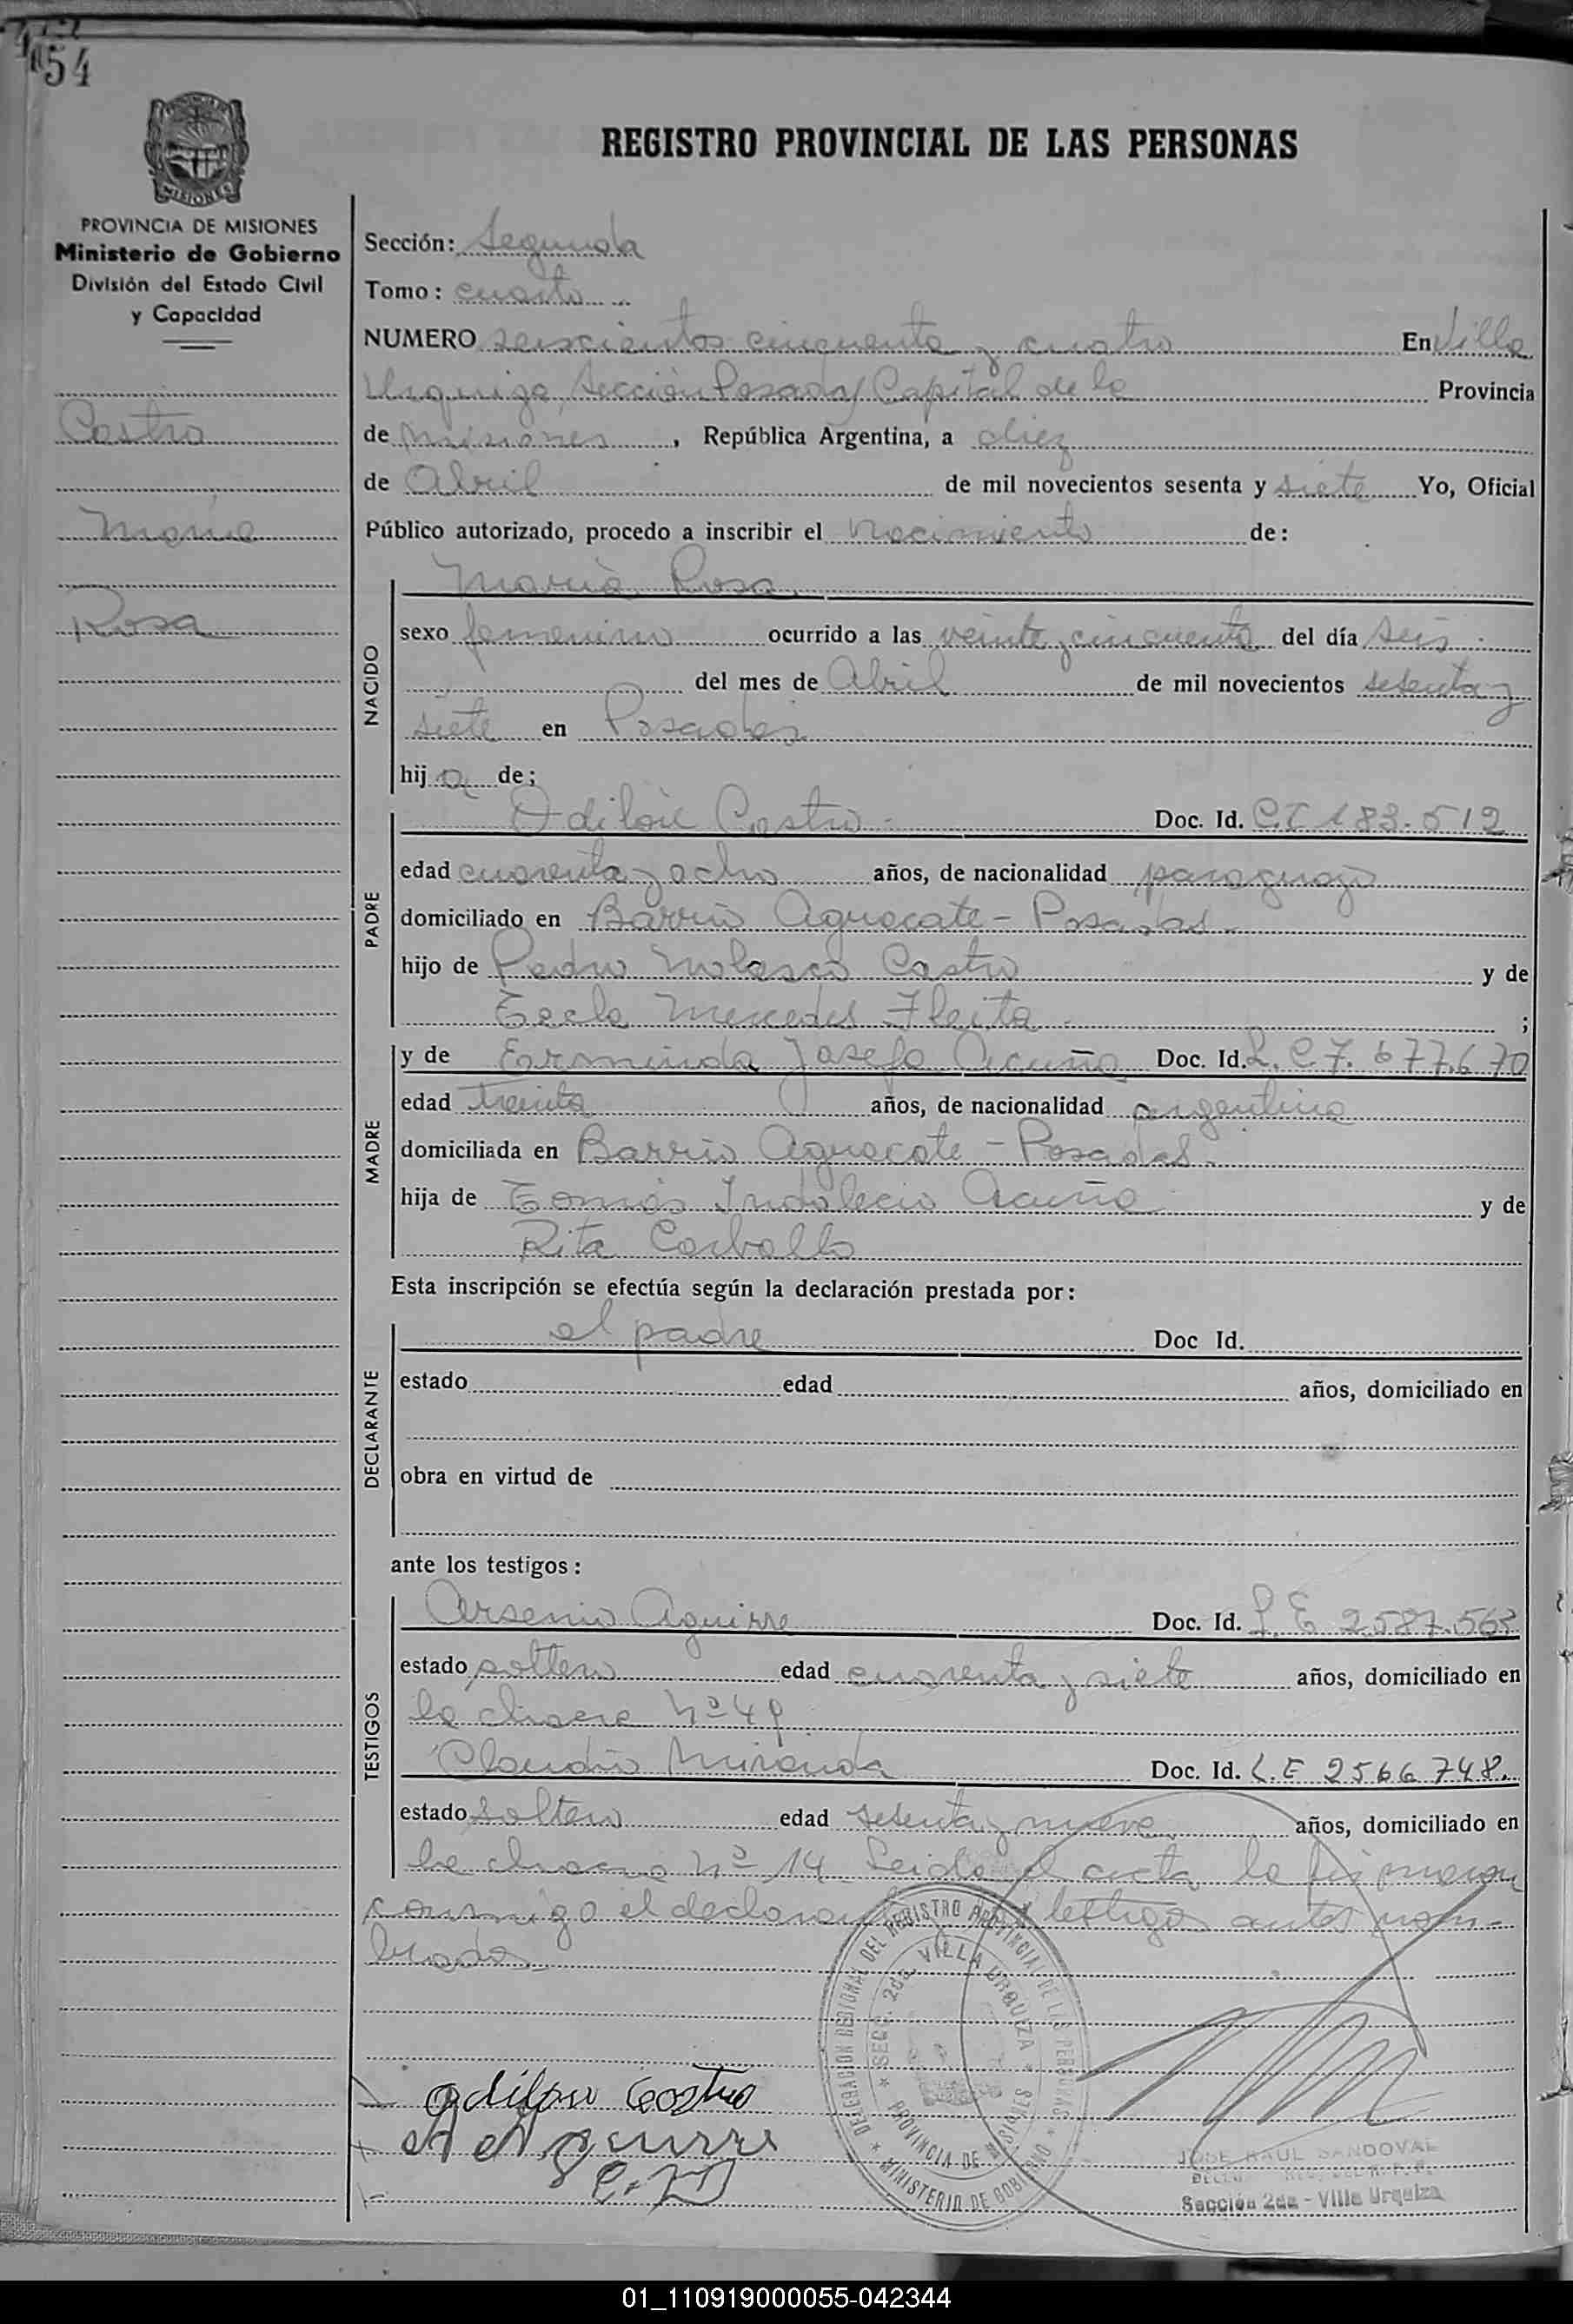 654
REGISTRO PROVINCIAL DE LAS PERSONAS
MISIONES
PROVINCIA DE MISIONES
Ministerio de Gobierno
División del Estado Civil
y Capacidad
Castro
Maria
Rosa
Sección: Segunda
Tomo: cuarto
NUMERO seiscientos cincuenta y cuatro En Villa
Urquiza, Sección Posadas Capital de la Provincia
de Misiones, República Argentina, a diez
de Abril de mil novecientos sesenta y siete Yo, Oficial
Público autorizado, procedo a inscribir el Nacimiento de:
NACIDO
María Rosa
sexo femenino ocurrido a las veinte y cincuenta del día seis
del mes de Abril de mil novecientos sesenta y
siete en Posadas
hija de;
PADRE
Odilón Castro Doc. Id. C.I 183.512
edad cuarenta y ocho años, de nacionalidad paraguayo
domiciliado en Barrio Aguacate - Posadas.
hijo de Pedro Nolasco Castro y de
Tecla Mercedes Fleita ;
MADRE
y de Erminda Josefa Acuña Doc. Id. L.C. 7.677.670
edad treinta años, de nacionalidad argentina
domiciliada en Barrio Aguacate - Posadas.
hija de Tomás Indalecio Acuña y de
Rita Carballo
Esta inscripción se efectúa según la declaración prestada por:
DECLARANTE
el padre Doc Id.
estado edad años, domiciliado en
obra en virtud de
ante los testigos:
TESTIGOS
Arsenio Aguirre Doc. Id. L.E 2.587.563
estado soltero edad cuarenta y siete años, domiciliado en
la chacra Nº 49
Claudio Miranda Doc. Id. L.E 2566748.
estado soltero edad sesenta y nueve años, domiciliado en
la chacra Nº 14 Leida el acta la firmaron
conmigo el declarante testigos antes nom-
brados
DELEGACION REGIONAL DEL REGISTRO PROVINCIAL DE LAS PERSONAS * MINISTERIO DE GOBIERNO *
* SECC. 2da. VILLA URQUIZA * PROVINCIA DE MISIONES
Odilon Castro
A Aguirre
C. M
JOSE RAUL SANDOVAL
Sección 2da - Villa Urquiza
01_110919000055-042344